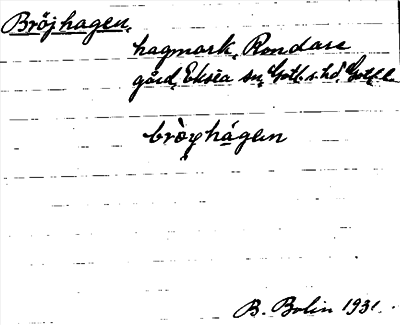 Bröjhagen,
hagmark, Rondarve
gård, Eksta sn, Gotl. s. hd, Gotl. l.
bròyhágen
B. Bolin 1931.